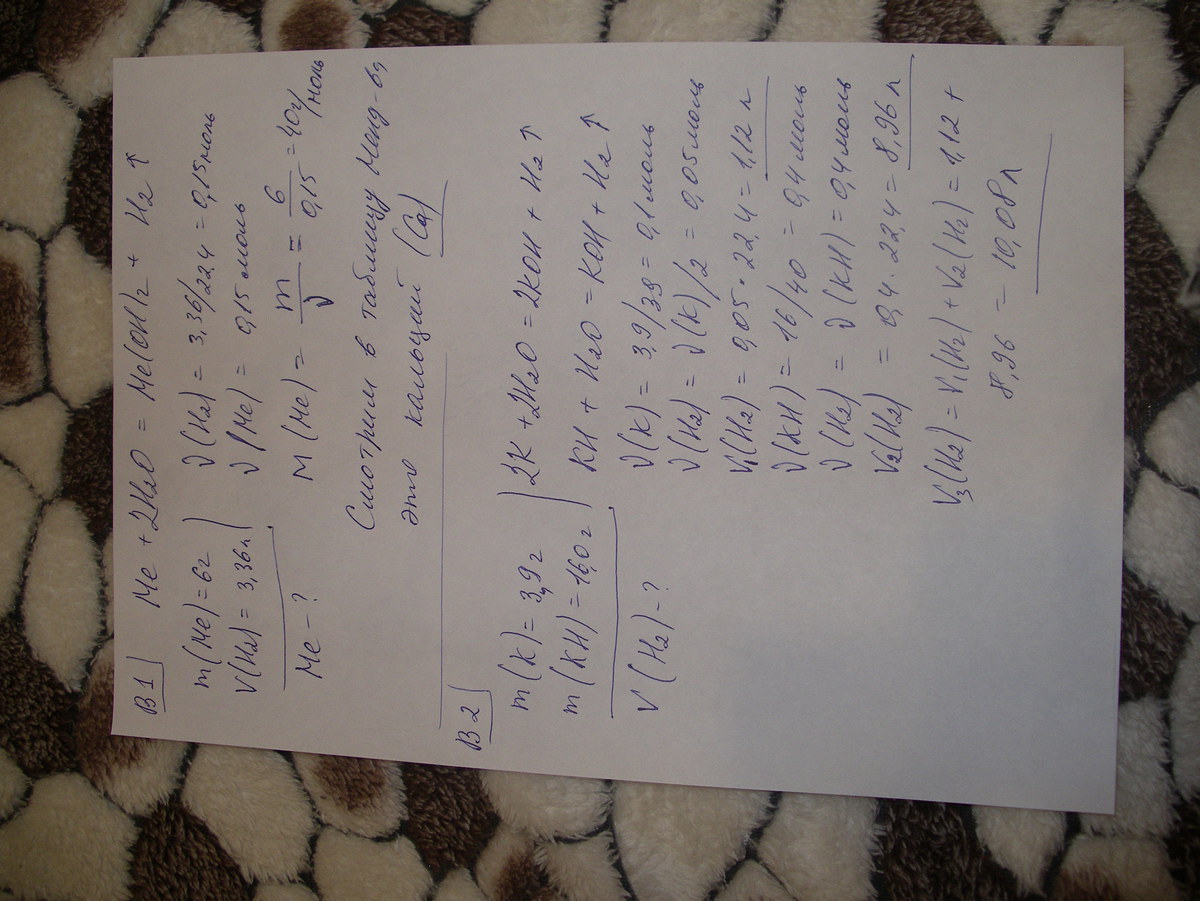 В1
Me + 2H2O = Me(OH)2 + H2↑
m(Me) = 6г
ν(H2) = 3,36/22,4 = 0,15 моль
V(H2) = 3,36 л
ν(Me) = 0,15 моль
Me - ?
M(Me) = m/ν = 6/0,15 = 40 г/моль
Смотрим в таблицу Менд-ва,
это кальций (Ca)
В2
m(K) = 3,9 г
2K + 2H2O = 2KOH + H2↑
m(KH) = 16,0 г
KH + H2O = KOH + H2↑
V(H2) - ?
ν(K) = 3,9/39 = 0,1 моль
ν(H2) = ν(K)/2 = 0,05 моль
V1(H2) = 0,05 · 22,4 = 1,12 л
ν(KH) = 16/40 = 0,4 моль
ν(H2) = ν(KH) = 0,4 моль
V2(H2) = 0,4 · 22,4 = 8,96 л
V3(H2) = V1(H2) + V2(H2) = 1,12 +
8,96 = 10,08 л